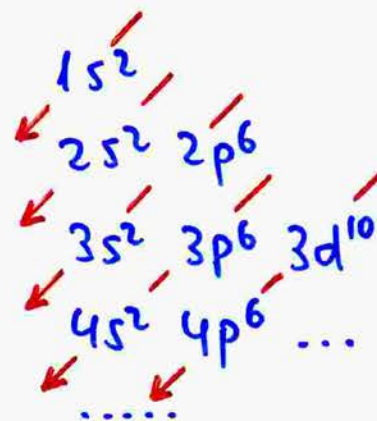 1s²
2s² 2p⁶
3s² 3p⁶ 3d¹⁰
4s² 4p⁶ ...
.....